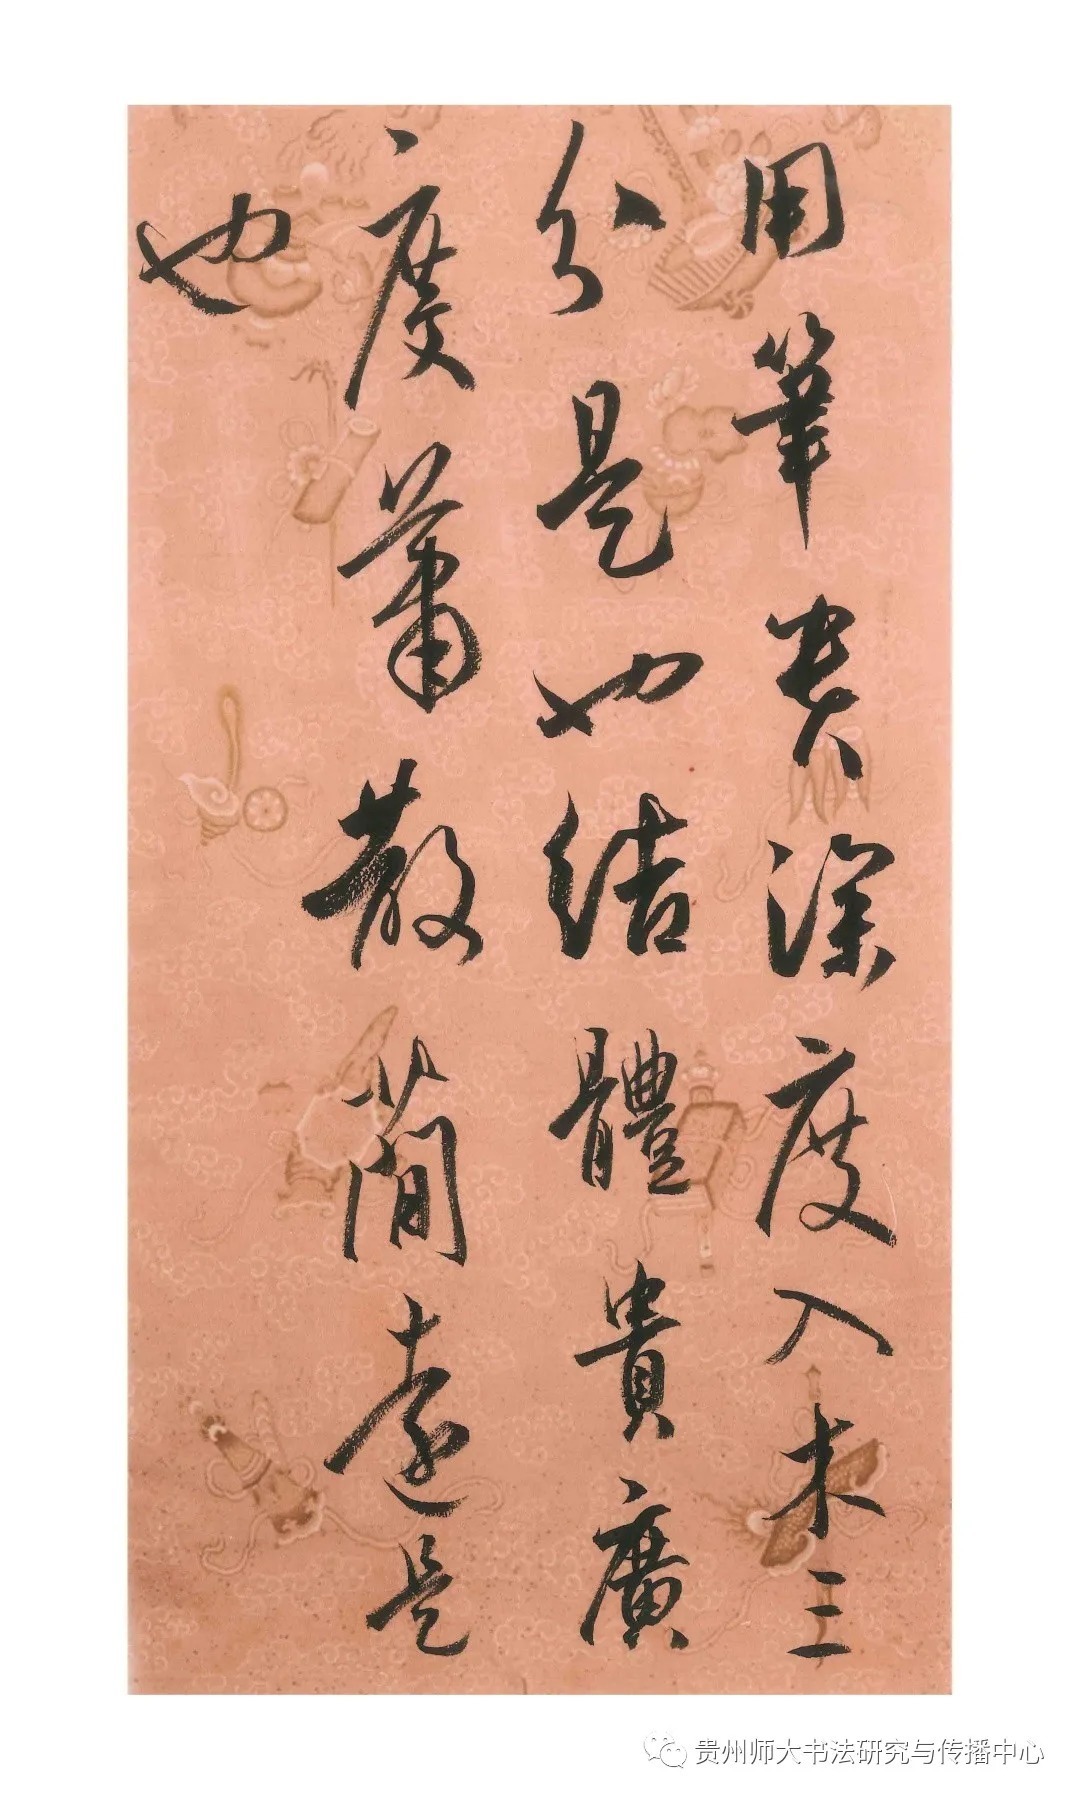 用筆貴深度入木三
分是也結體貴廣
度蕭散簡遠是
也
贵州师大书法研究与传播中心